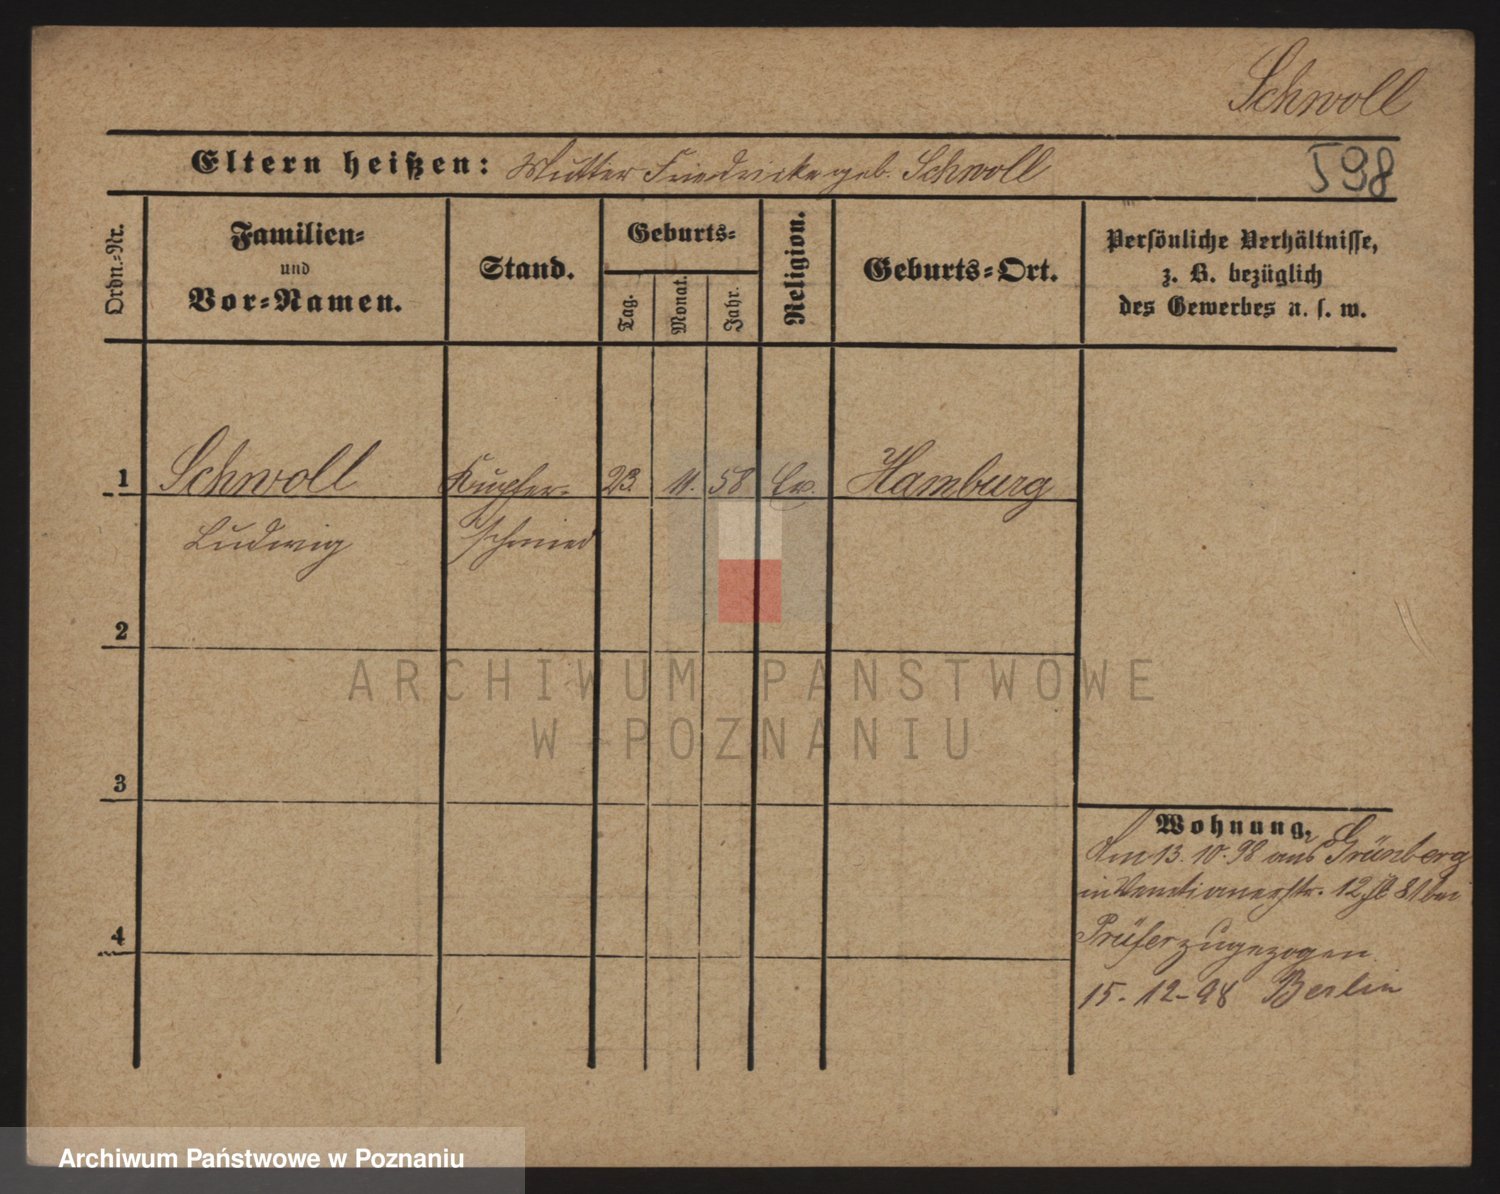 Schwoll
Eltern heißen: Mutter Friedricke geb. Schwoll
598
Ordn.-Nr.
Familien-
und
Vor-Namen.
Stand.
Geburts-
Tag.
Monat.
Jahr.
Religion.
Geburts-Ort.
Persönliche Verhältnisse,
z. B. bezüglich
des Gewerbes u. s. w.
1 Schwoll Kupfer- 23. 11. 58 Ev. Hamburg
Ludwig schmied
2
ARCHIWUM PAŃSTWOWE
W POZNANIU
3
Wohnung.
Am 13. 10. 98 aus Grünberg
in 12 81 bei
Prüfer zugezogen
4
15. 12. 98 Berlin
Archiwum Państwowe w Poznaniu